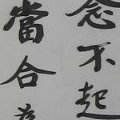 念不起
當合